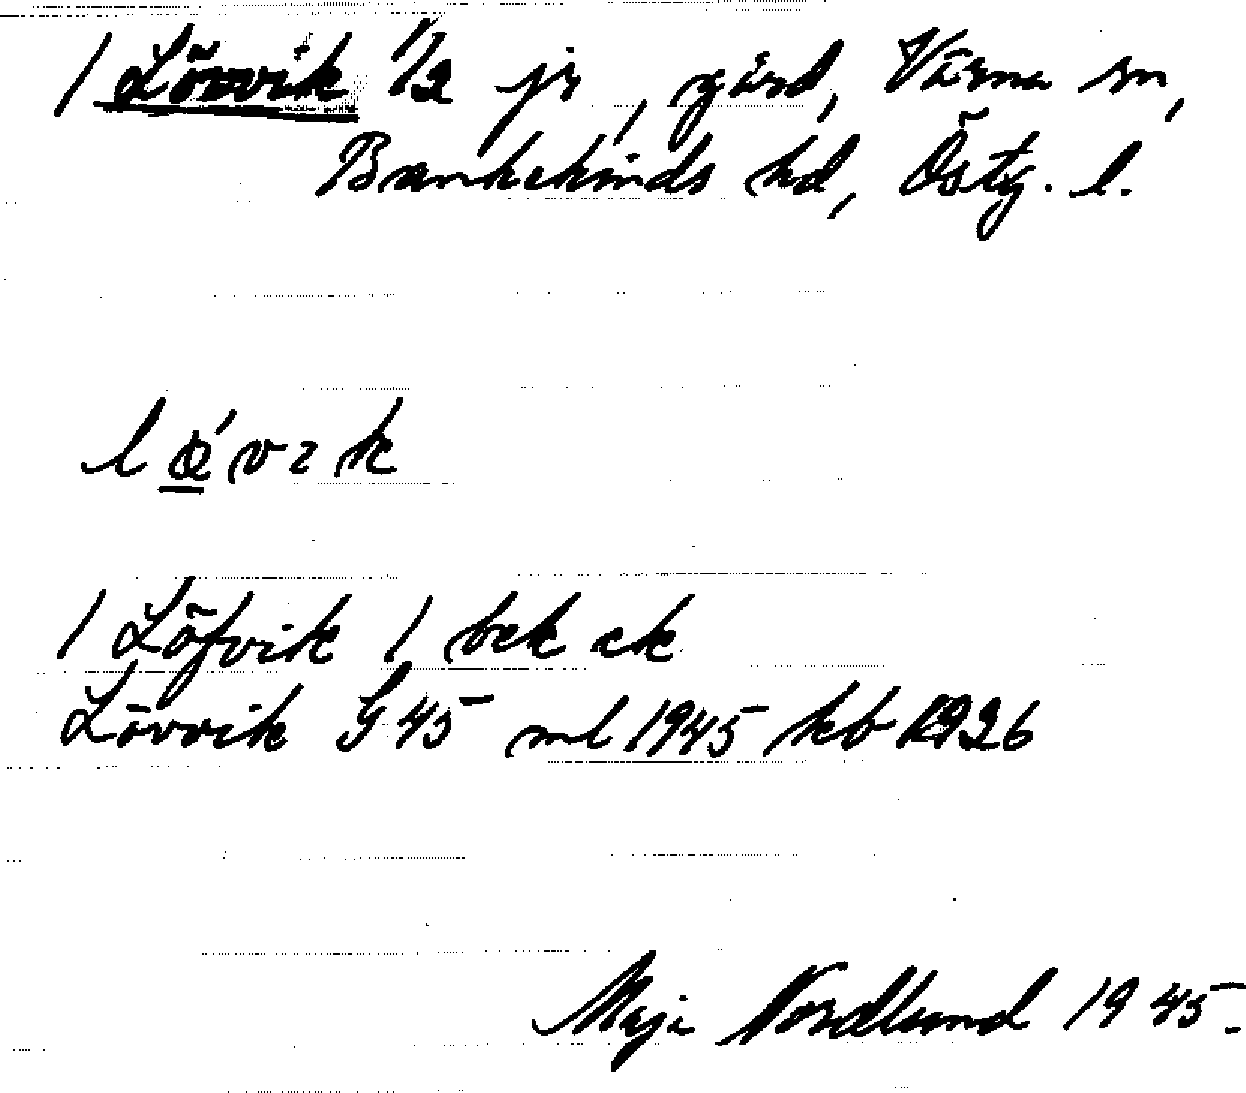 / Lövvik 1/2 jr, gård, Värna sn,
Bankekinds hd, Östg. l.
/ Löfvik / bek ek
Lövvik G 45 ml 1945 kb 1926
Maja Nordlund 1945.